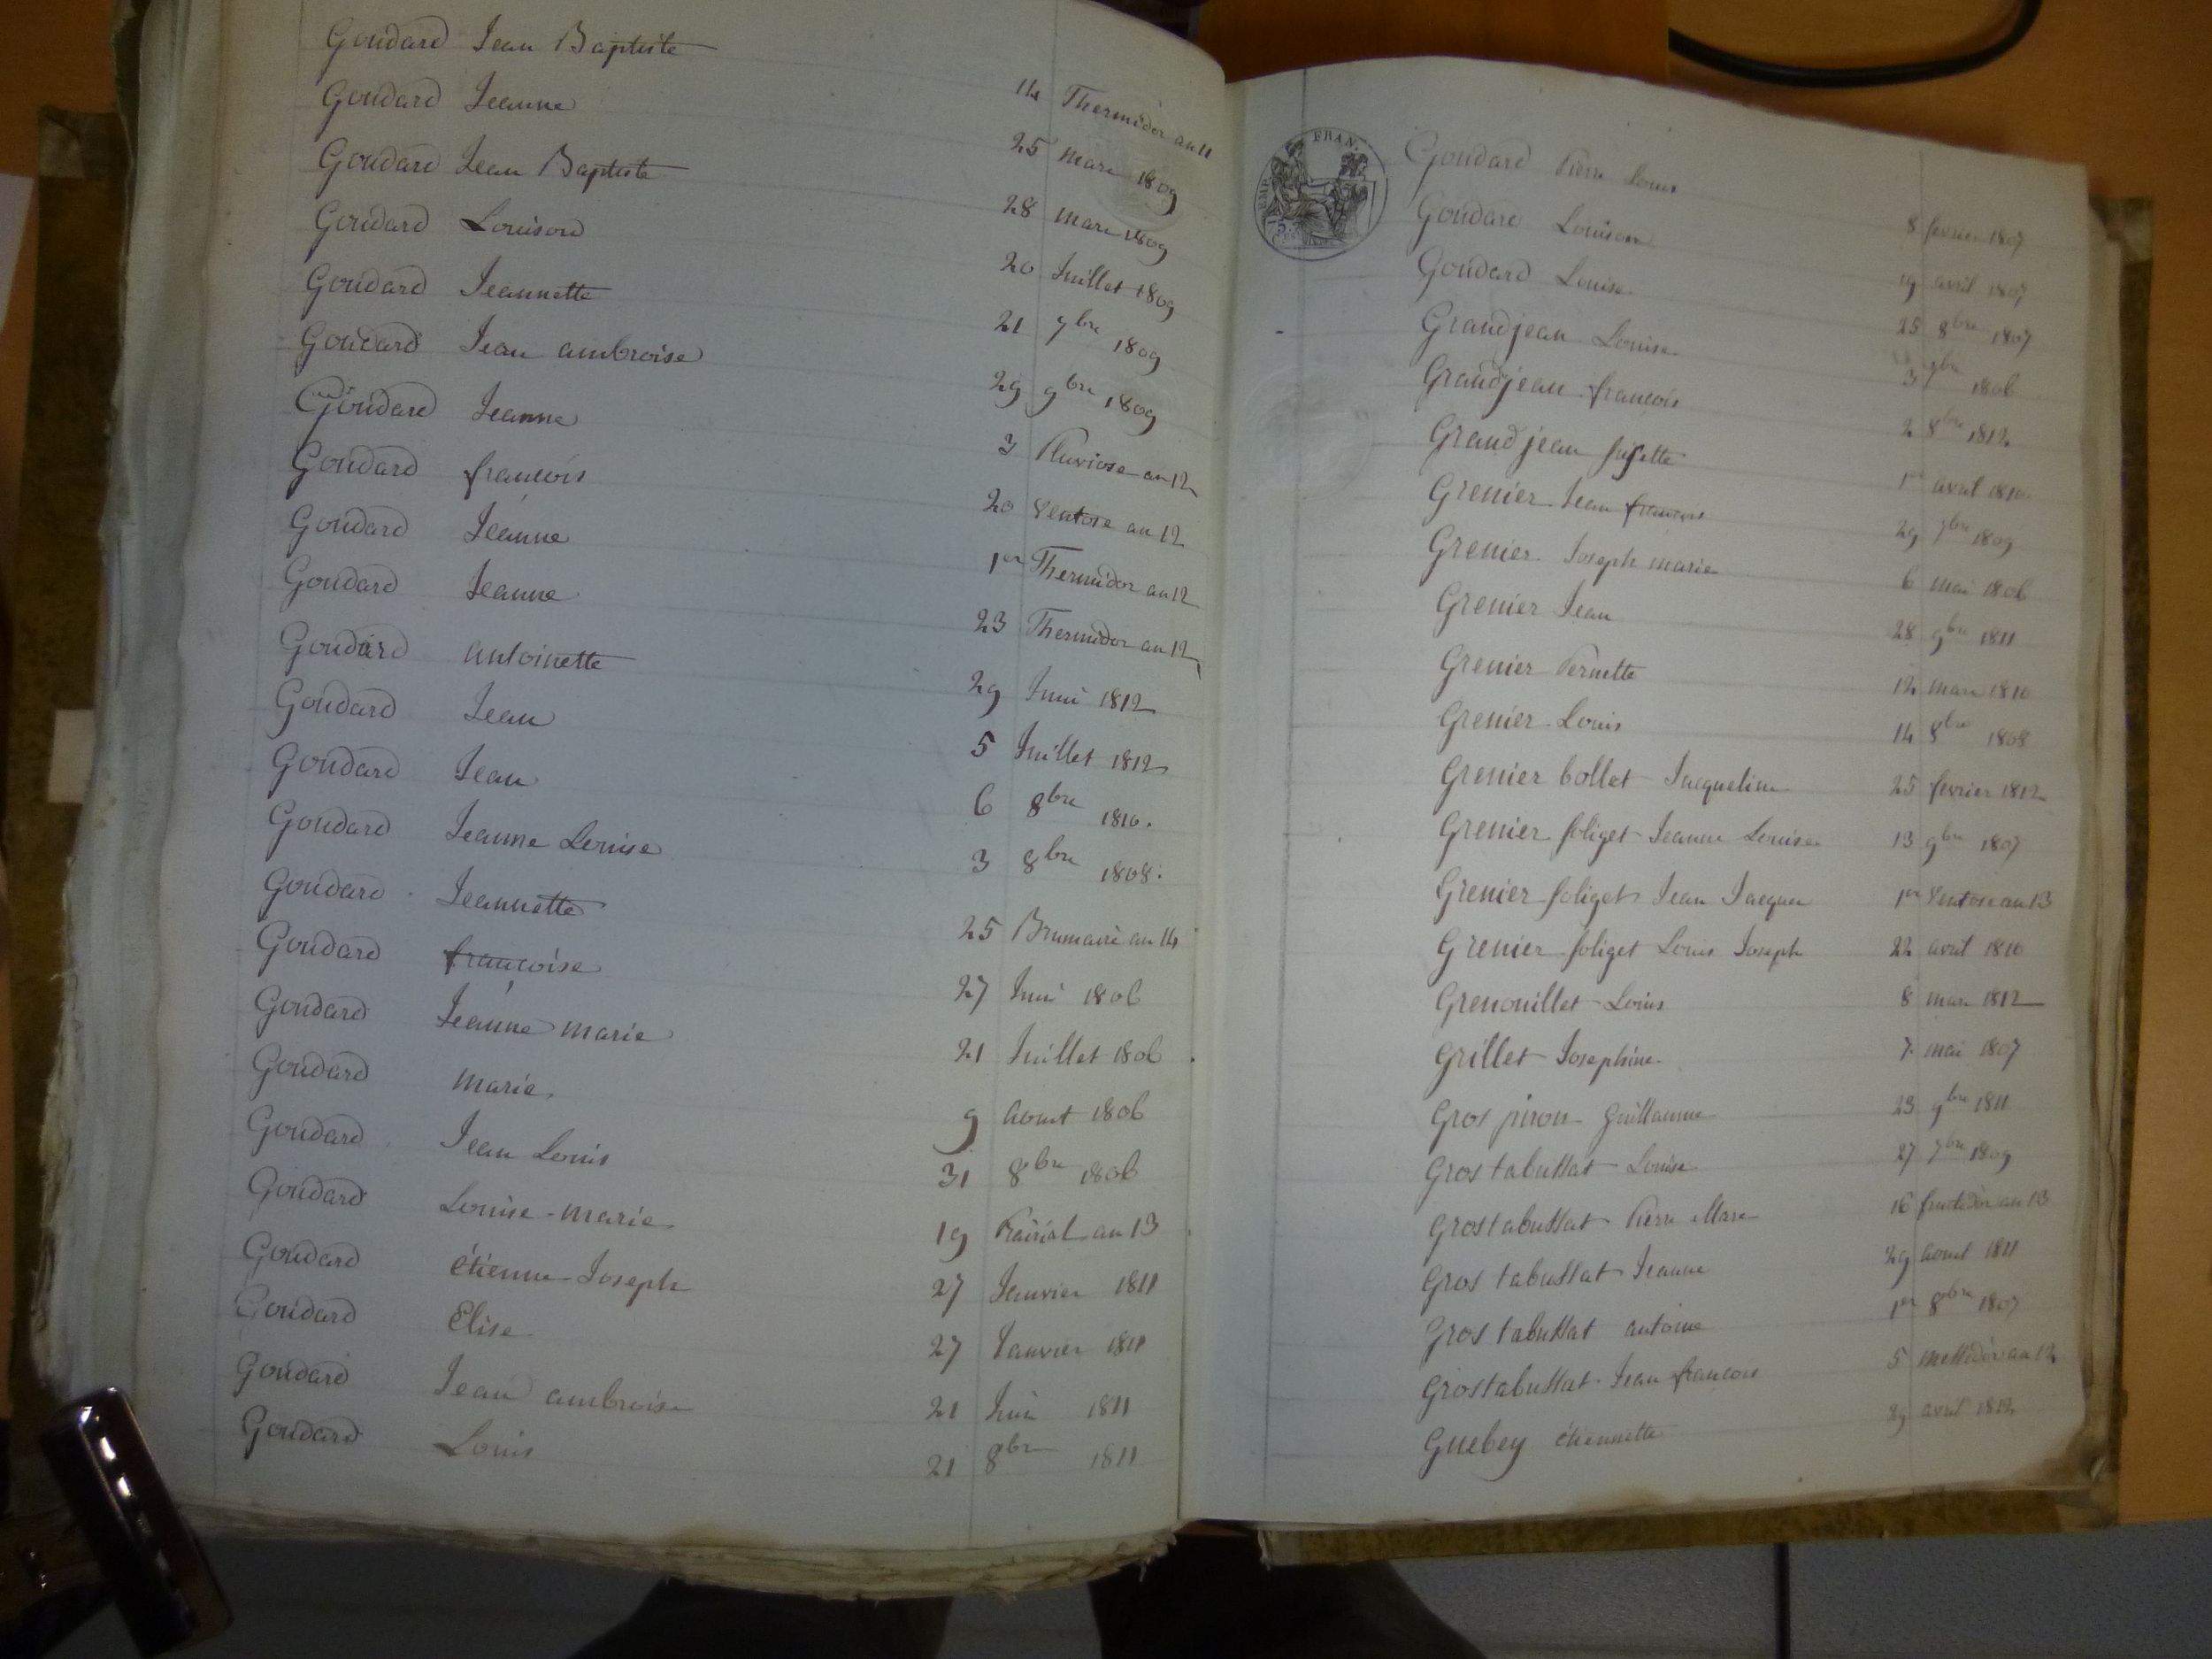 Goudard Jean Baptiste 14 Thermidor an 11
Goudard Jeanne 25 mars 1809
Goudard Jean Baptiste 28 mars 1809
Goudard Louison 20 Juillet 1809
Goudard Jeannette 21 7bre 1809
Goudard Jean ambroise 29 9bre 1809
Goudard Jeanne 3 Pluviose an 12
Goudard francois 20 Ventose an 12
Goudard Jeanne 1er Thermidor an 12
Goudard Jeanne 23 Thermidor an 12
Goudard antoinette 29 Juin 1812
Goudard Jean 5 Juillet 1812
Goudard Jean 6 8bre 1810.
Goudard Jeanne Louise 3 8bre 1808.
Goudard Jeannette 25 Brumaire an 14
Goudard françoise 27 Juin 1806
Goudard Jeanne marie 21 Juillet 1806
Goudard marie 9 Aout 1806
Goudard Jean Louis 31 8bre 1806
Goudard Louise-marie 19 Prairial an 13
Goudard étienne-Joseph 27 Janvier 1811
Goudard Elise 27 Janvier 1811
Goudard Jean ambroise 21 Juin 1811
Goudard Louis 21 8bre 1811
EMP. FRAN.
Goudard Pierre Louis 8 fevrier 1807
Goudard Louison 19 avril 1807
Goudard Louise 25 8bre 1807
Grandjean Louise 1806
Grandjean francois 2 8bre 1812
Grandjean 1er avril 1810
Grenier Jean francois 29 7bre 1809
Grenier Joseph marie 6 mai 1806
Grenier Jean 28 9bre 1811
Grenier Pernette 12 mars 1810
Grenier Louis 14 8bre 1808
Grenier bollet Jacqueline 25 fevrier 1812
Grenier foliget Jeanne Louise 13 9bre 1807
Grenier foliget Jean Jacques 1er Ventose an 13
Grenier foliget Louis Joseph 22 avril 1810
Grenouillet Louis 8 mars 1812
Grillet Josephine 7 mai 1807
Gros piron Guillaume 23 9bre 1811
Gros tabussat Louise 27 7bre 1809
Gros tabussat Pierre Marie 16 fructidor an 13
Gros tabussat Jeanne 29 aout 1811
Gros tabussat antoine 1er 8bre 1807
Gros tabussat Jean francois 5 messidor an 12
Guebey étiennette 29 avril 1812